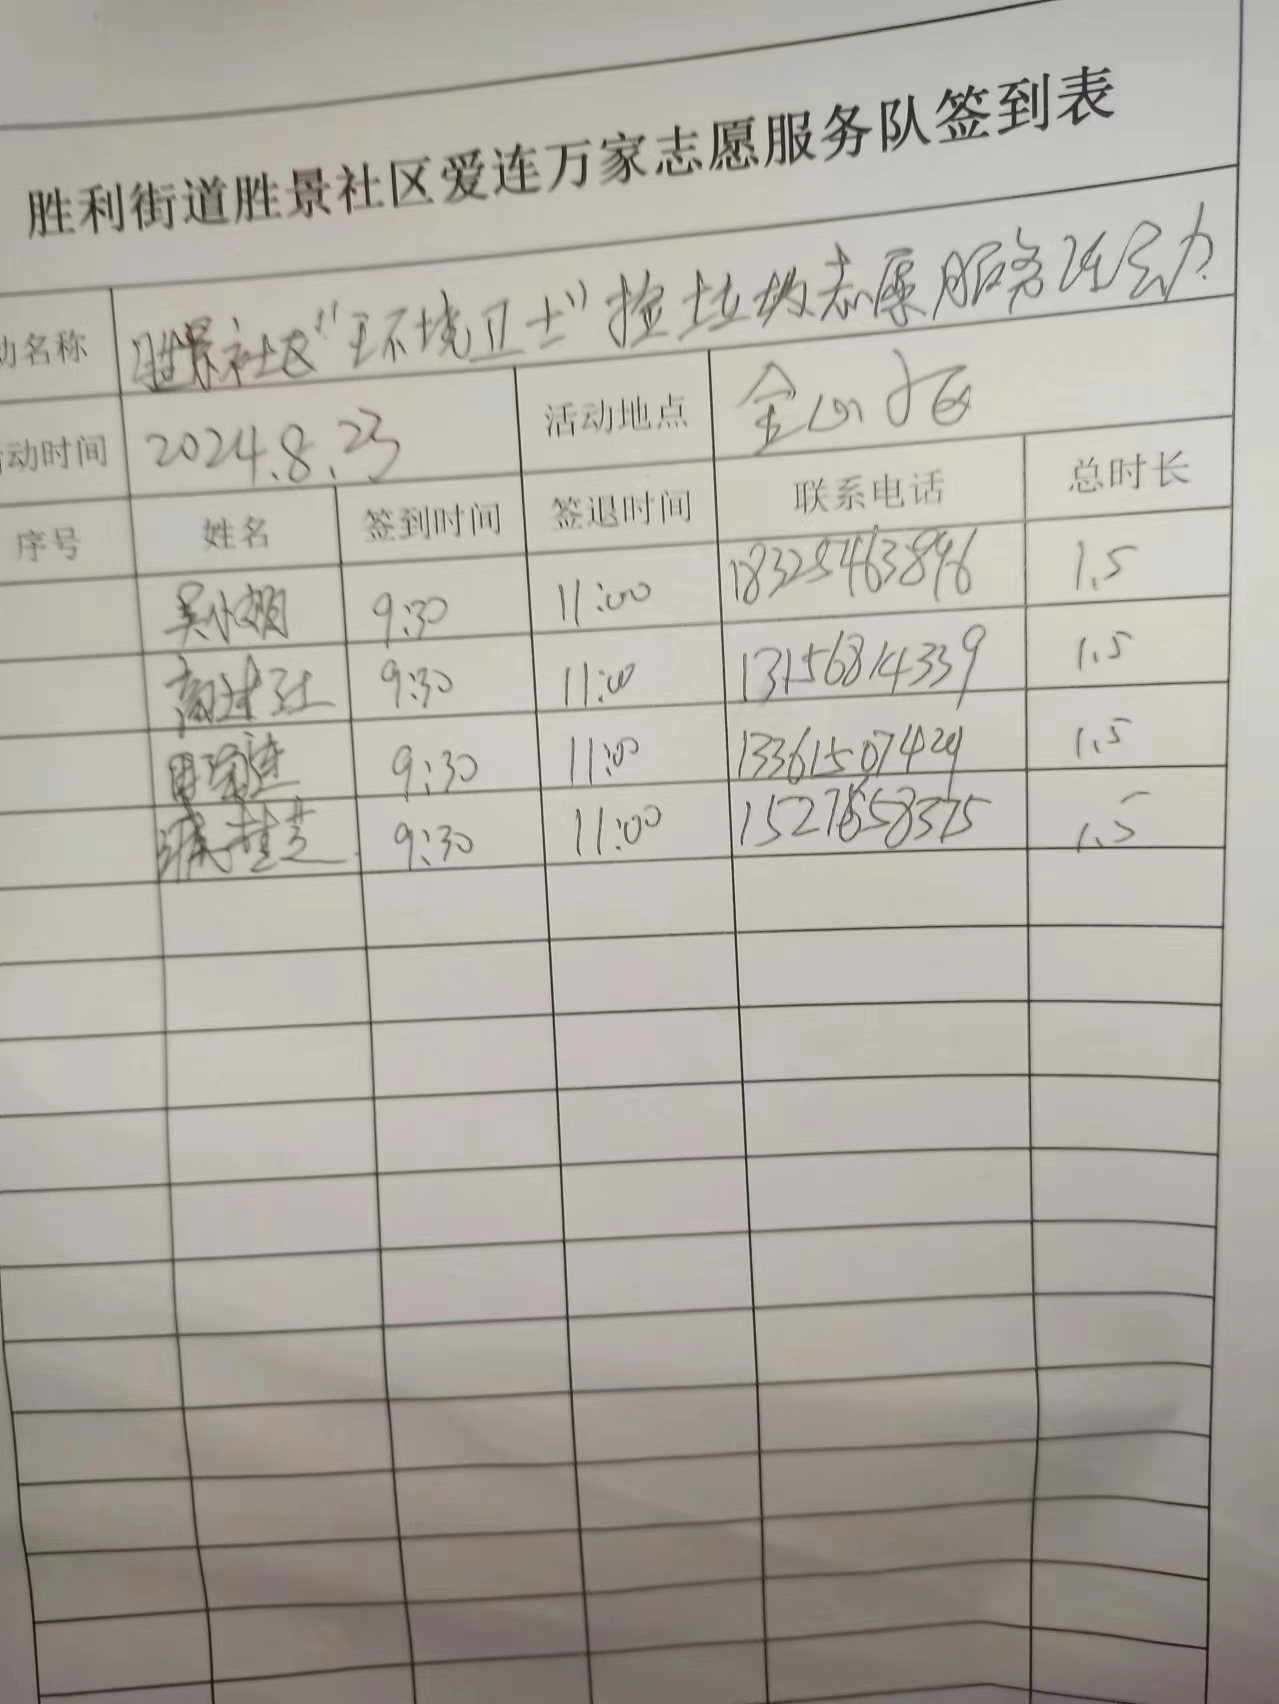 胜利街道胜景社区爱连万家志愿服务队签到表
动名称 胜景社区“环境卫士”捡垃圾志愿服务活动
动时间 2024.8.23 活动地点
序号 姓名 签到时间 签退时间 联系电话 总时长
9:30 11:00 1.5
9:30 11:00 13156814339 1.5
9:30 11:00 1.5
桂芝 9:30 11:00 1.5